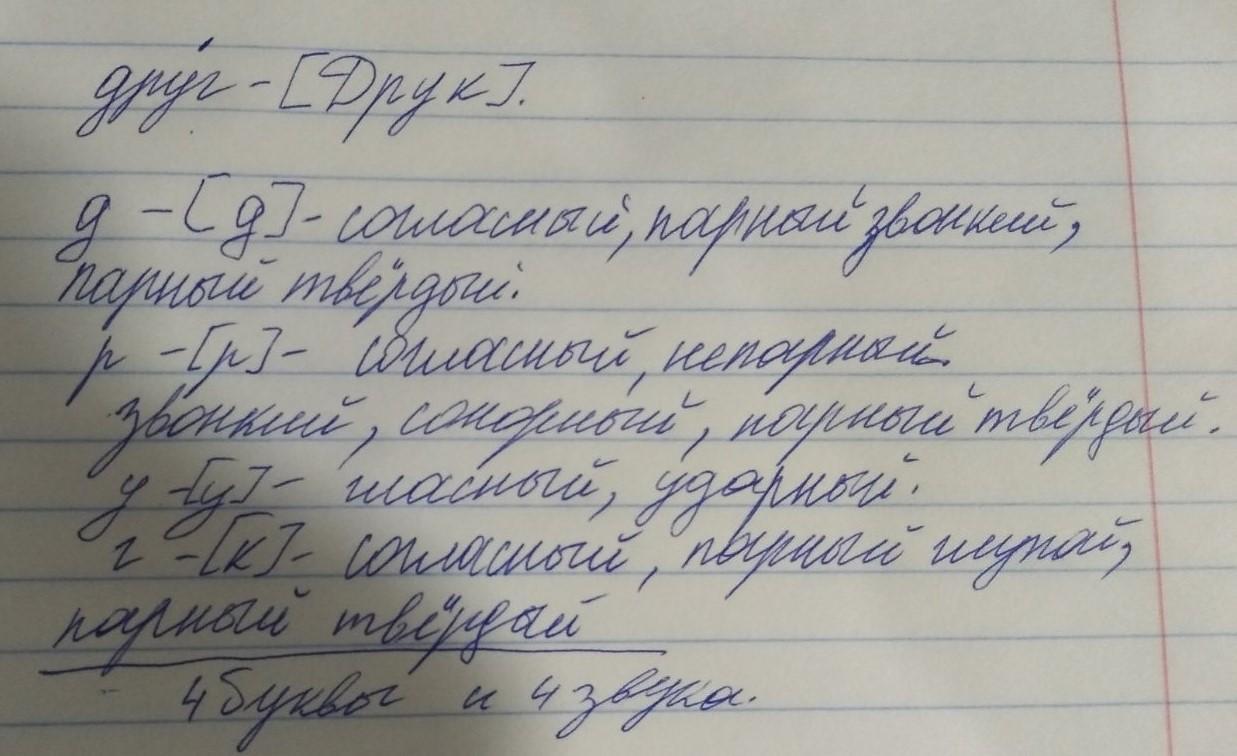 дру́г - [Друк].
д - [д] - согласный, парный звонкий,
парный твёрдый.
р - [р] - согласный, непарный
звонкий, сонорный, парный твёрдый.
у - [у] - гласный, ударный.
г - [к] - согласный, парный глухой,
парный твёрдый
4 буквы и 4 звука.